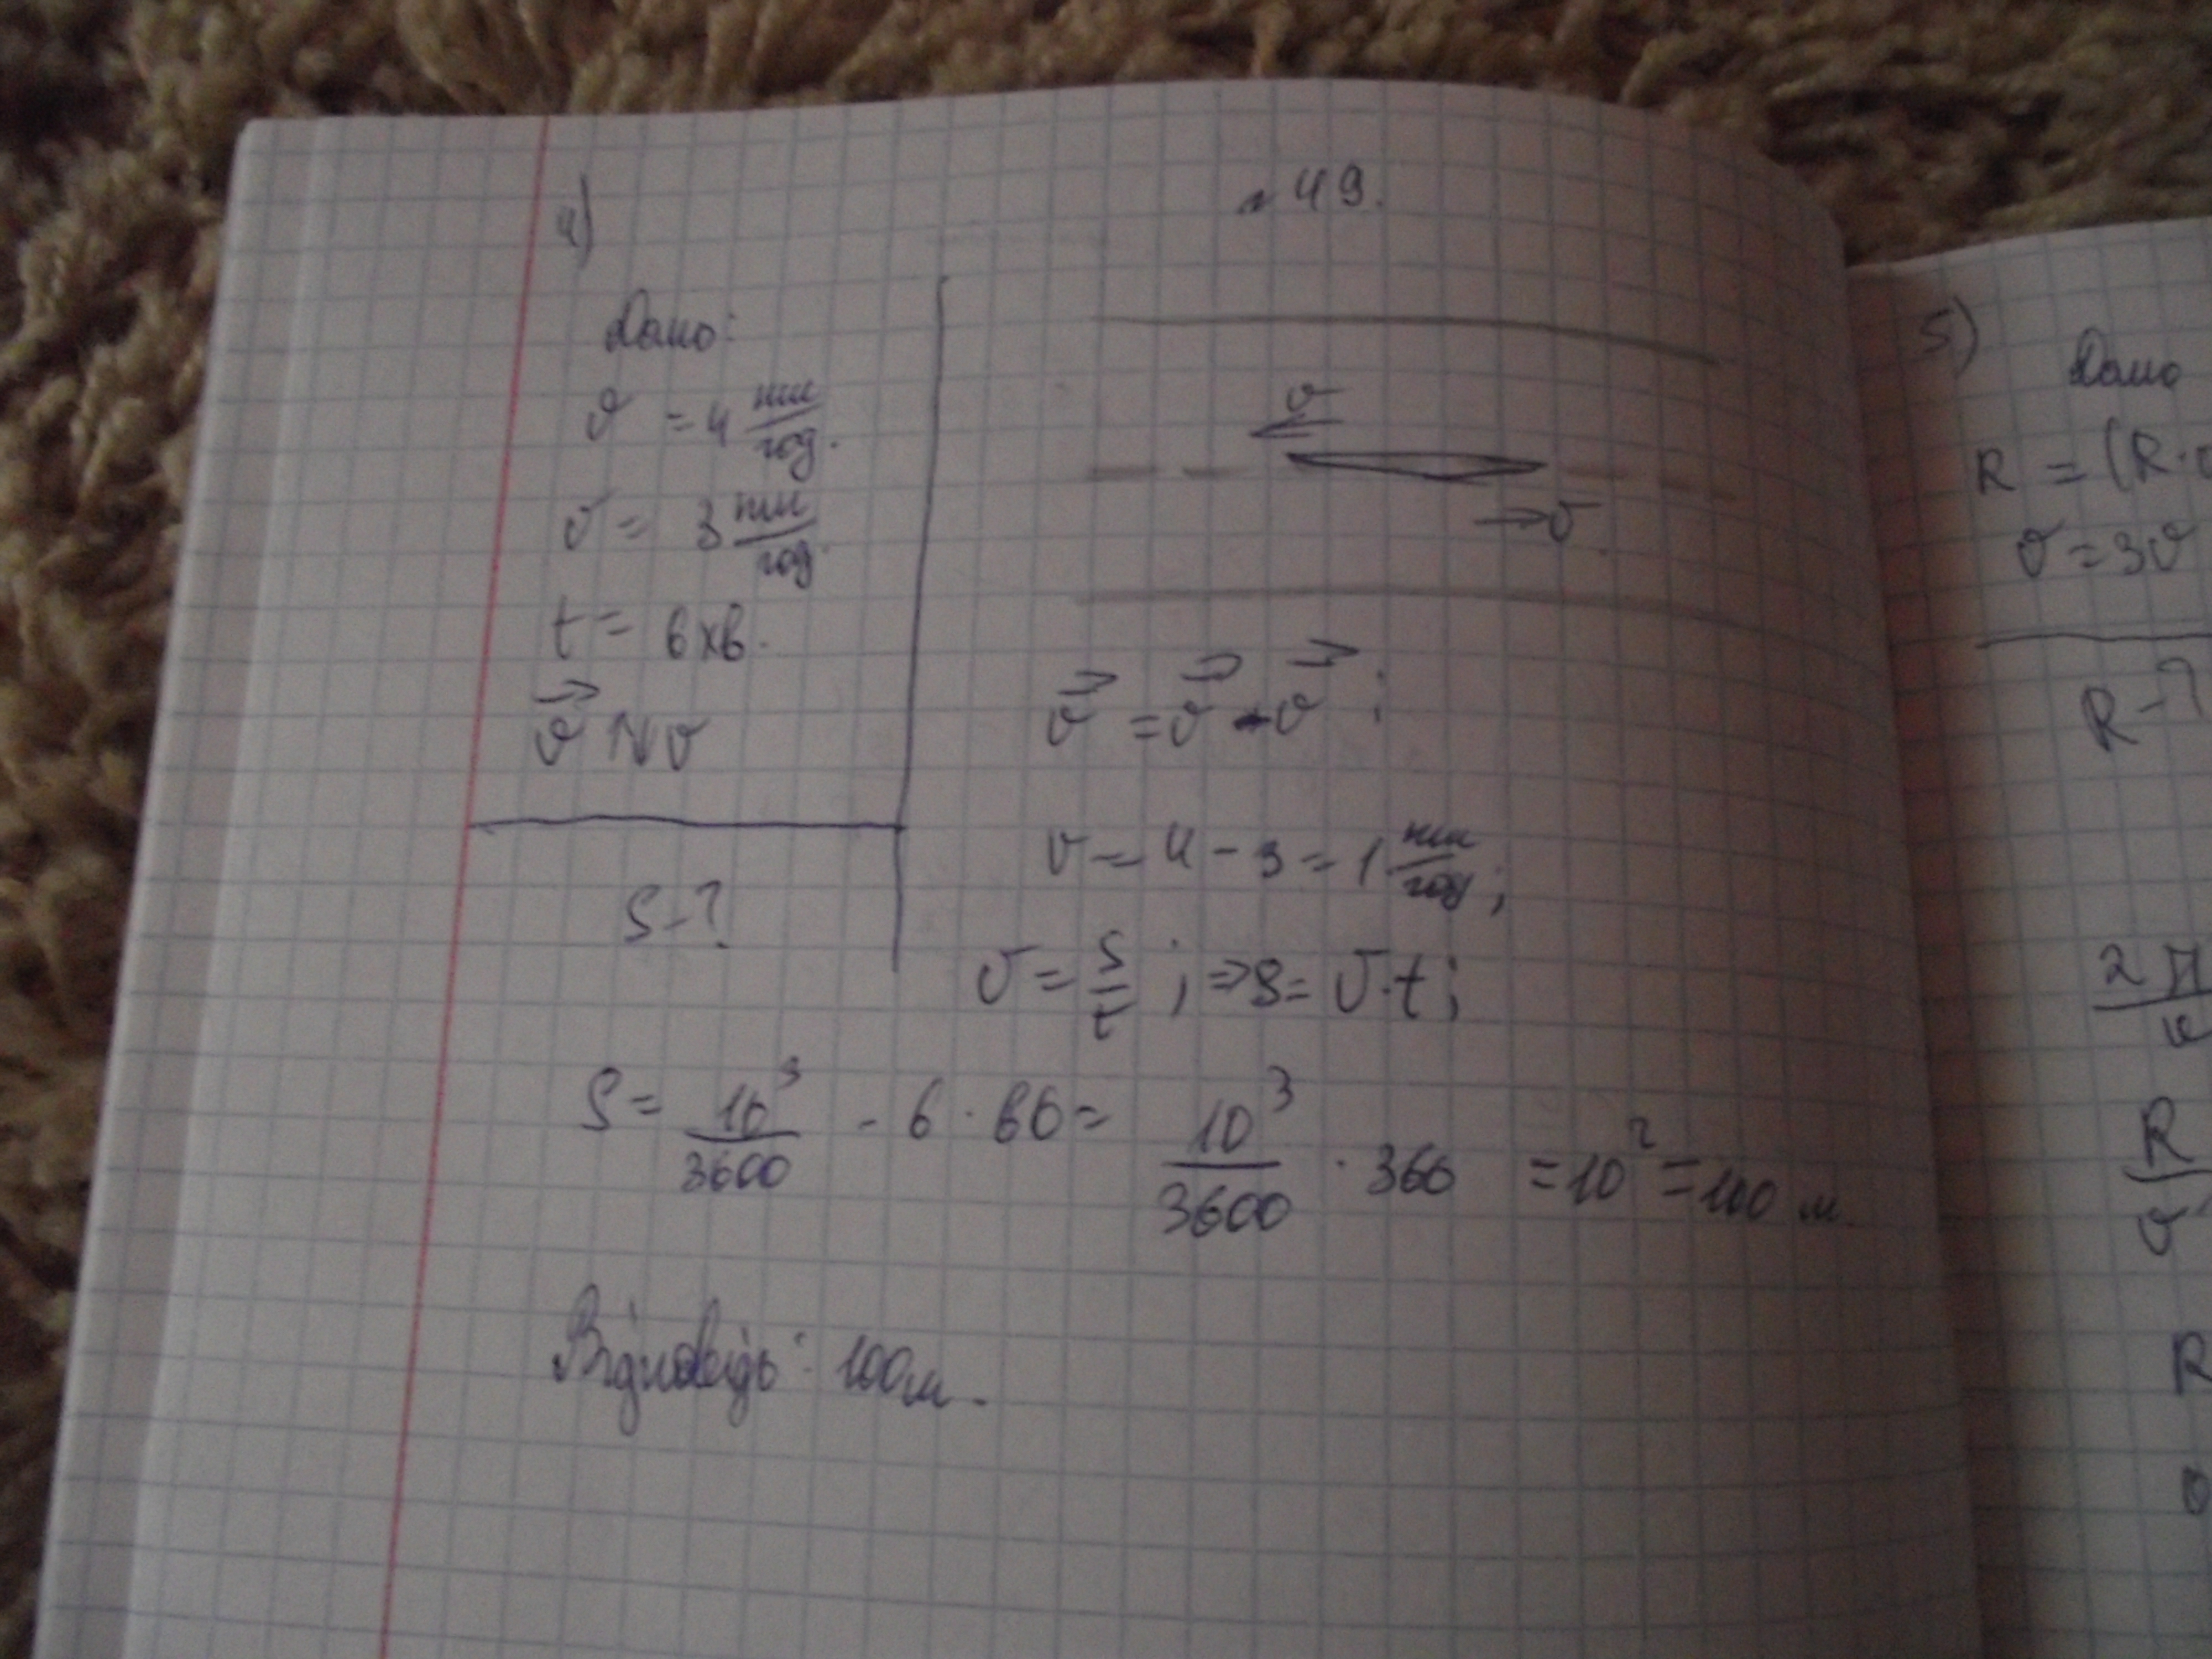 4)
№ 49.
Дано:
v = 4 км/год.
v = 3 км/год.
t = 6 хв.
v⃗ ↑↓ v
S - ?
v
v
v⃗ = v⃗ - v⃗ ;
v = 4 - 3 = 1 км/год ;
v = S/t ; => S = v · t ;
S = 10³/3600 · 6 · 60 = 10³/3600 · 360 = 10² = 100 м.
Відповідь: 100 м.
5)
Дано
R = (R ·
v = 3v
R - ?
2π
v
R
v
R